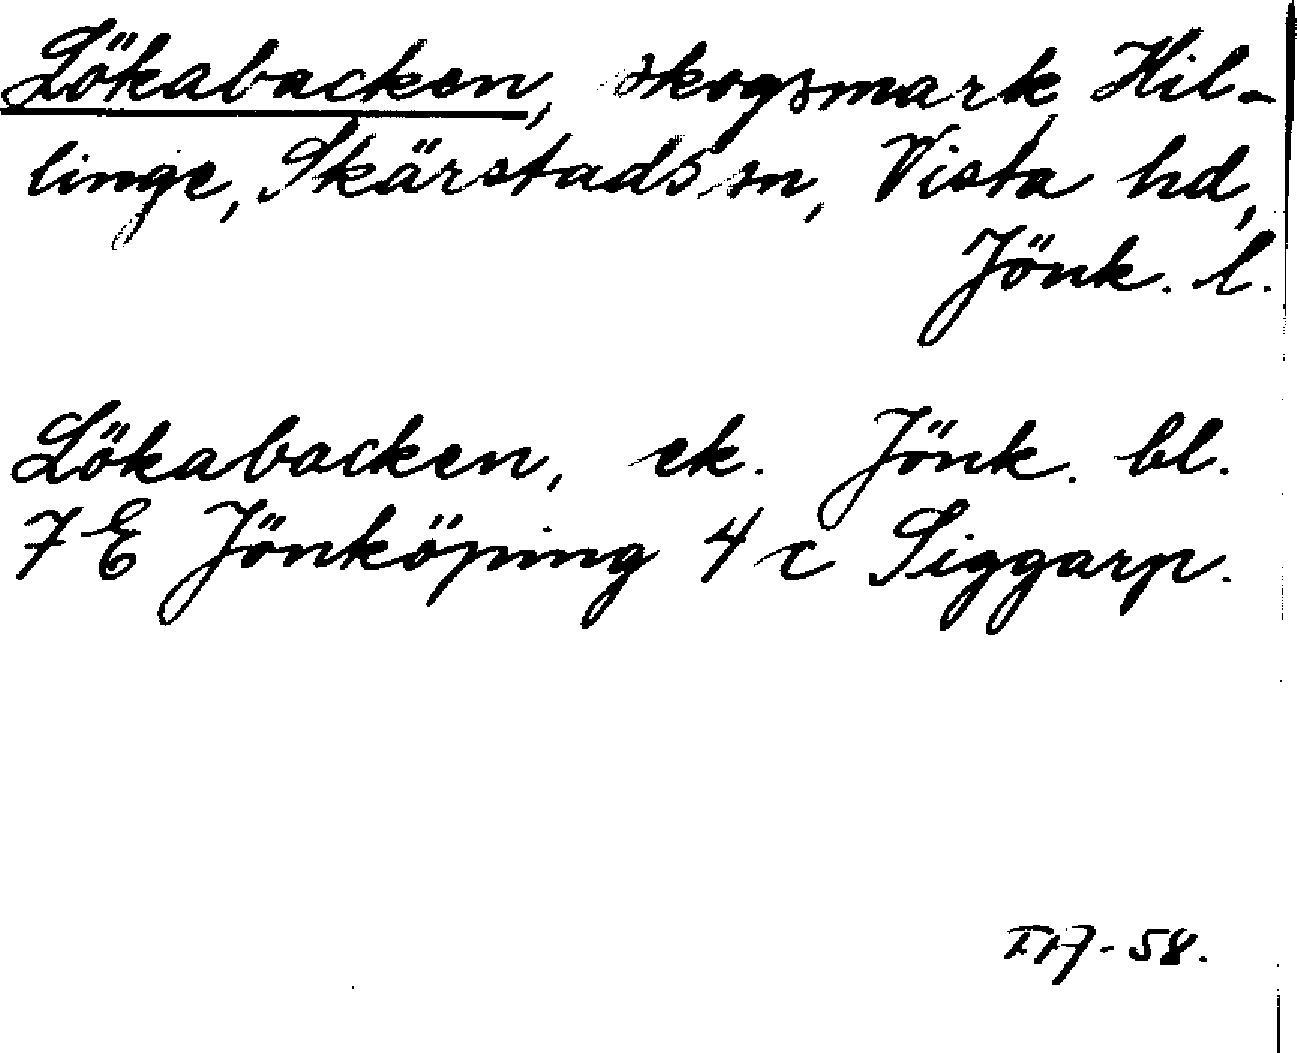 Lökabacken, skogsmark Hil-
linge, Skärstads sn, Vista hd,
Jönk. l.
Lökabacken, ek. Jönk. bl.
7 E Jönköping 4 c Siggarp.